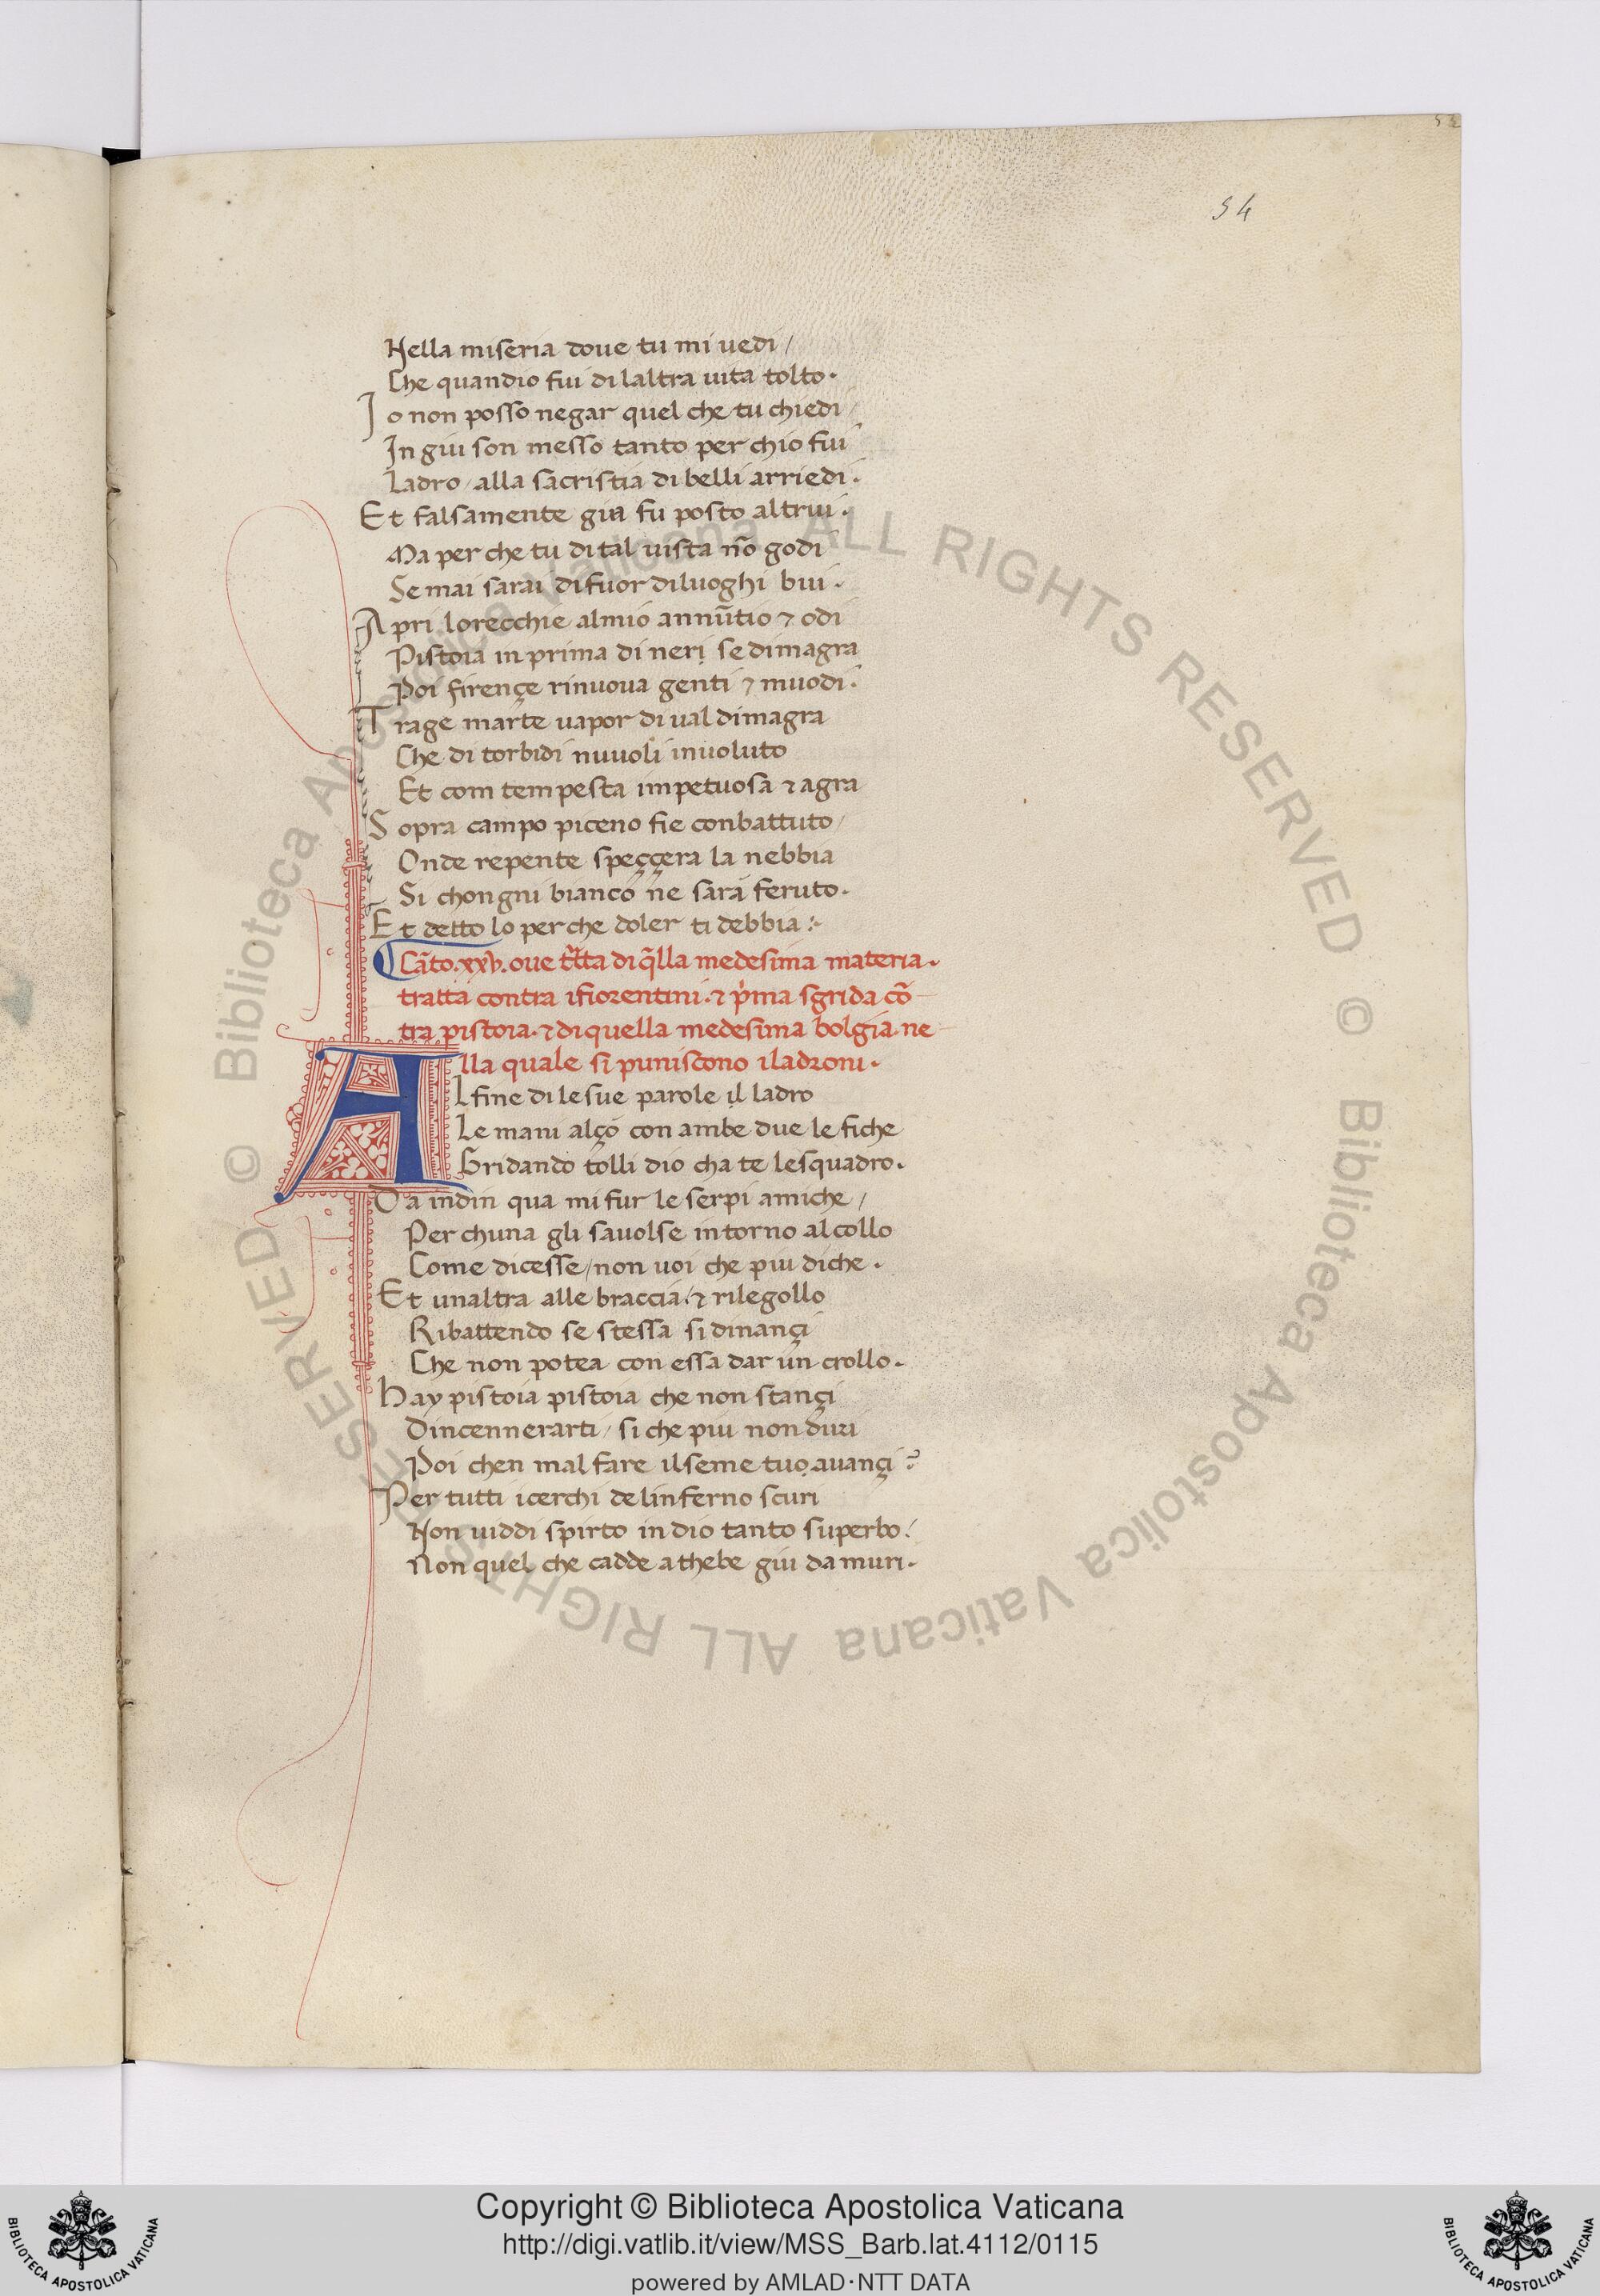 54
Nella miseria doue tu mi uedi /
Che quandio fui di laltra uita tolto.
Io non posso negar quel che tu chiedi /
In giu son messo tanto per chio fui
Ladro / alla sacristia di belli arriedi.
Et falsamente gia fu posto altrui.
Ma per che tu di tal uista nō godi
Se mai sarai di fuor di luoghi bui.
Apri lorecchie al mio annūtio ⁊ odi
Pistoia in prima di neri se dimagra
Poi firençe rinuoua genti ⁊ muodi.
Trage marte uapor di ual di magra
Che di torbidi nuuoli inuoluto
Et com tempesta impetuosa ⁊ agra
Sopra campo piceno fie conbattuto /
Onde repente speççera la nebbia
Si chongni bianco ne sara feruto.
Et detto lo per che doler ti debbia :~
Cāto .xxv. oue trātta di qlla medesima materia.
tratta contra ifiorentini. ⁊ pima sgrida cō
tra pistoia. ⁊ di quella medesima bolgia. ne
lla quale si puniscono iladroni.
Al fine di le sue parole il ladro
Le mani alço con ambe due le fiche
Gridando tolli dio cha te lesquadro.
Da indin qua mi fur le serpi amiche /
Per chuna gli sauolse intorno al collo
Come dicesse / non uoi che piu diche.
Et unaltra alle braccia / ⁊ rilegollo
Ribattendo se stessa si dinançi
Che non potea con essa dar un crollo.
Hay pistoia pistoia che non stançi
Dincennerarti / si che piu non duri
Poi chen mal fare il seme tuo auançi ?
Per tutti icerchi de linferno scuri
Non uiddi spirto in dio tanto superbo /
Non quel che cadde a thebe giu da muri.
© Biblioteca Apostolica Vaticana ALL RIGHTS RESERVED
© Biblioteca Apostolica Vaticana ALL RIGHTS RESERVED
Copyright © Biblioteca Apostolica Vaticana
http://digi.vatlib.it/view/MSS_Barb.lat.4112/0115
powered by AMLAD·NTT DATA
BIBLIOTECA APOSTOLICA VATICANA
BIBLIOTECA APOSTOLICA VATICANA